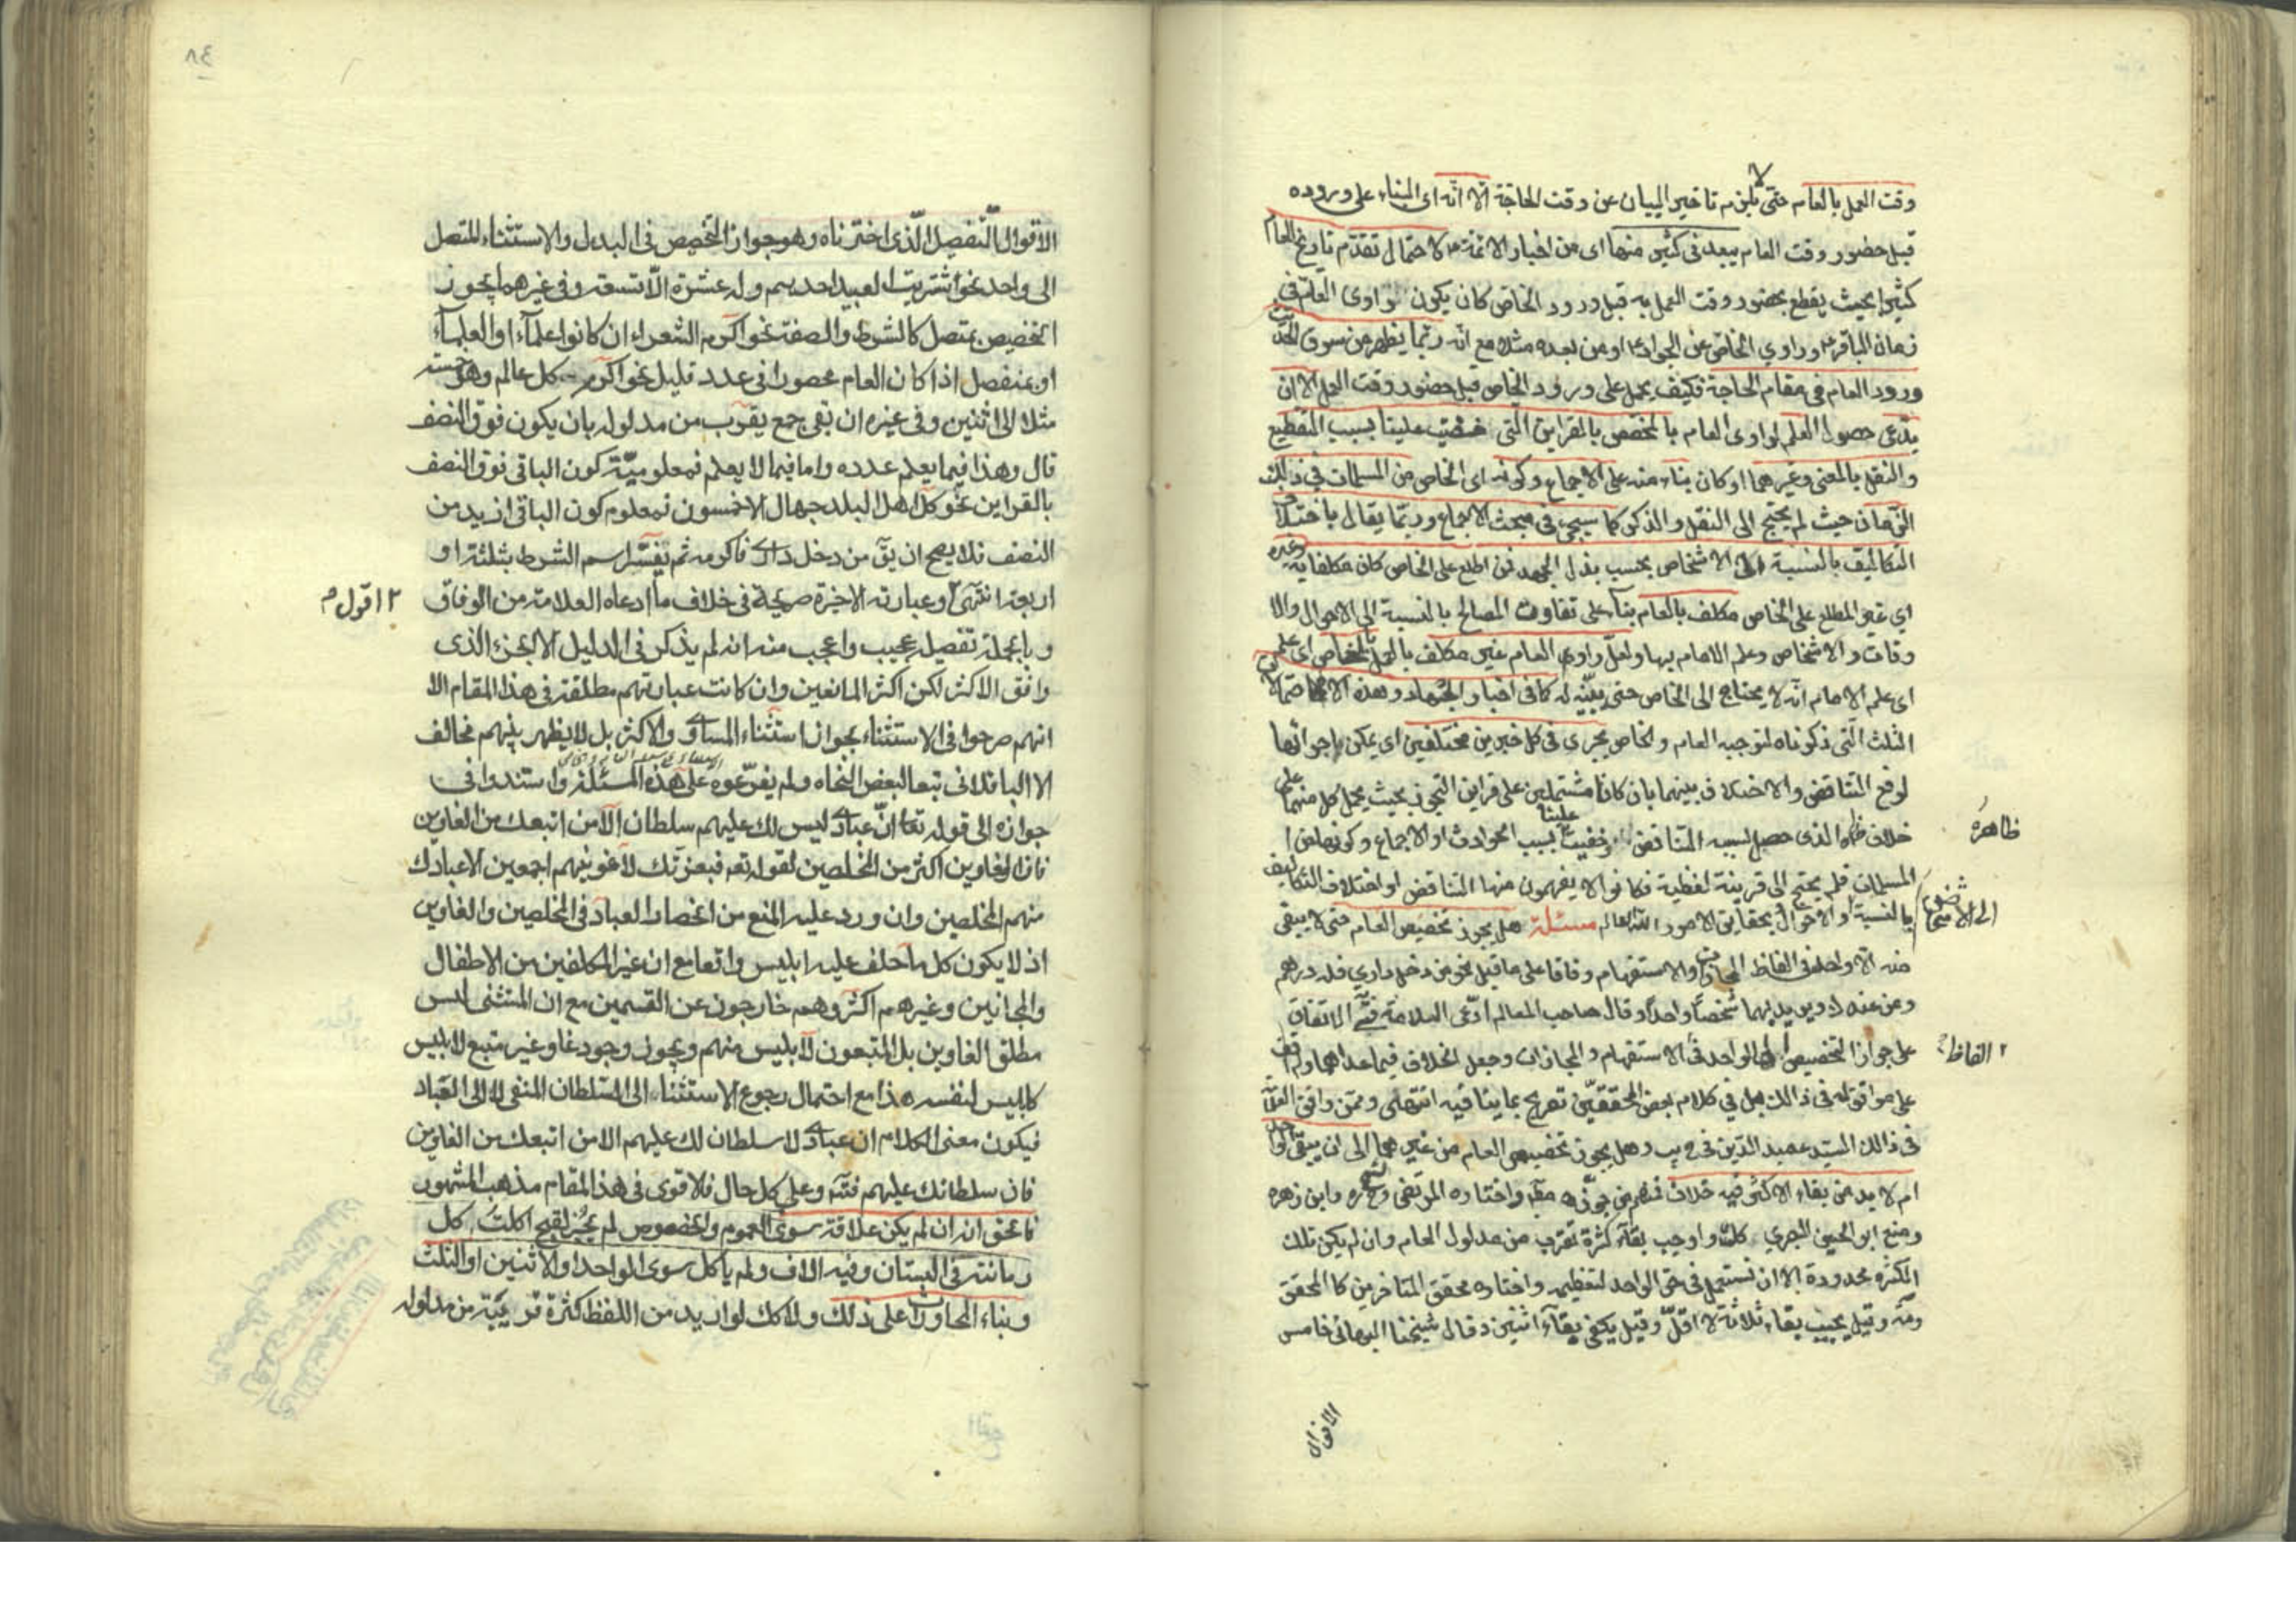 وقت العمل بالعام حتى لا يلزم تاخير البيان عن وقت الحاجة الا انّه اى البناء على وروده
قبل حضور وقت العام يبعد فى كثير منها اى من اخبار الائمة لاحتمال تقدّم تاريخ العام
كثيرا بحيث يقطع بحضور وقت العمل به قبل ورود الخاص كان يكون راوى العام فى
زمان الباقر وراوي الخاص عن الجواد او من بعده مثلا مع انّه ربّما يظهر من سوق الحديث
ورود العام فى مقام الحاجة فكيف يحمل على ورود الخاص قبل حضور وقت العمل الا ان
يدّعى حصول العلم لراوى العام بالمخصص بالقراين التى خفيت علينا بسبب التقطيع
والنقل بالمعنى وغيرهما او كان بناء منه على الاجماع وكونه اى الخاص من المسلمات فى ذلك
الزمان حيث لم يحتج الى النقل والذكر كما سيجى فى مبحث الاجماع وربّما يقال باختلاف
التكاليف بالنسبة الى الاشخاص بحسب بذل الجهد فمن اطلع على الخاص كان مكلفا به وغيره
اي غير المطلع على الخاص مكلف بالعام بناء على تفاوت المصالح بالنسبة الى الاحوال والا
وقات والاشخاص وعلم الامام بها ولعلّ راوي العام غير مكلف بالعمل بالخاص اى علم
اى علم الامام انّه لا يحتاج الى الخاص حتى يبيّنه له كما فى اخبار الجهاد وهذه الاحتمالات
الثلث التى ذكرناه لتوجيه العام والخاص يجرى فى كل خبرين مختلفين اى يمكن اجرائها
لرفع التناقض والاختلاف بينهما بان كانا مشتملين على قراين التجوز بحيث يحمل كل منهما على
خلاف ظاهره الذى حصل بسببه التناقض وخفيت علينا بسبب الحوادث او الاجماع وكونهما من
المسلمات فلم يحتج الى قرينة لفظية فكانوا لا يفهمون منها التناقض او اختلاف التكاليف
بالنسبة الى الاشخاص او الاحوال بحقايق الامور الله العالم مسئلة هل يجوز تخصيص العام حتى لا يبقى
منه الا واحد فى الفاظ المجازات والاستفهام وفاقا على ما قيل نحو من دخل دارى فله درهم
ومن عندك ويريد بهما شخصا واحدا وقال صاحب المعالم ادّعى العلامة الاتفاق
على جواز التخصيص الى الواحد فى الفاظ الاستفهام والمجازات وجعل الخلاف فيما عداهما ولم اقف
على موافق له فى ذلك بل فى كلام بعض المحققين تصريح بما ينافيه انتهى وممن وافق العلامة
فى ذلك السيد عميد الدين فى يب وهل يجوز تخصيص العام من غيرهما الى ان يبقى واحد
ام لا بد من بقاء الاكثر فيه خلاف فمنهم من جوّزه مطلقا واختاره المرتضى والشيخ وابن زهره
ومنع ابو الحسين البصري كلك واوجب بقاء كثرة تقرب من مدلول العام وان لم يكن تلك
الكثره محدودة الا ان تستعمل فى حق الواحد لتعظيم واختاره محقق المتاخرين كالمحقق
ومه وقيل يجب بقاء ثلاثة لا اقلّ وقيل يكفى بقاء اثنين وقال شيخنا البهائى خامس
ظاهره
الفاظ
الاقوال
٨٤
الاقوال التفصيل الّذى اخترناه وهو جواز التخصيص فى البدل والاستثناء المتصل
الى واحد نحو اشتريت العبيد احدهم وله عشرة الّا تسعة وفى غيرهما يجوز
التخصيص بمتصل كالشرط والصفة نحو اكرم الشعراء ان كانوا علماء او العلماء
او بمنفصل اذا كان العام محصورا فى عدد قليل نحو اكرم كل عالم وهو خمسة
مثلا الى اثنين وفى غيره ان بقى جمع يقرب من مدلوله بان يكون فوق النصف
قال وهذا فيما يعلم عدده واما فيما لا يعلم فمعلوميّة كون الباقى فوق النصف
بالقراين نحو كل اهل البلد جهال الا خمسون فمعلوم كون الباقى ازيد من
النصف فلا يصح ان يقّ من دخل دارى فاكرمه ثم يفسّر اسم الشرط بثلثة او
اربعة انتهى وعبارته الاخيرة صريحة فى خلاف ما ادعاه العلامة من الوفاق
اقول
وبالجملة تفصيله عجيب واعجب منه انه لم يذكر فى الدليل الا الجزء الذى
وافق الاكثر لكن اكثر المانعين وان كانت عبارتهم مطلقة فى هذا المقام الا
انهم صرحوا فى الاستثناء بجواز استثناء المساوى والاكثر بل لا يظهر بينهم مخالف
الا الباقلانى تبعا لبعض النحاه ولم يفرّعوه على هذه المسئلة واستندوا فى
جوازه الى قوله تعا انّ عبادى ليس لك عليهم سلطان الّا من اتبعك من الغاوين
فان الغاوين اكثر من المخلصين لقوله تعم فبعزّتك لاغوينهم اجمعين الا عبادك
منهم المخلصين وان ورد عليه المنع من انحصار العباد فى المخلصين والغاوين
اذ لا يكون كل ما حلف عليه ابليس واقعا مع ان غير المكلفين من الاطفال
والمجانين وغيرهم اكثر وهم خارجون عن القسمين مع ان المستثنى ليس
مطلق الغاوين بل المتبعون لابليس منهم ويجوز وجود غاو غير متبع لابليس
كابليس لنفسه هذا مع احتمال رجوع الاستثناء الى السلطان المنفى لا الى العباد
فيكون معنى الكلام ان عبادى لا سلطان لك عليهم الا من اتبعك من الغاوين
فان سلطانك عليهم فتم وعلى كل حال فالاقوى فى هذا المقام مذهب المشهور
فالحق انه ان لم يكن علاقة سوى العموم والخصوص لم يجز لقبح اكلت كل
رمانة فى البستان وفيه الاف ولم ياكل سوى الواحد او الاثنين او الثلث
وبناء المحاورات على ذلك ولا كك لو اريد من اللفظ كثرة قريبة من مدلوله